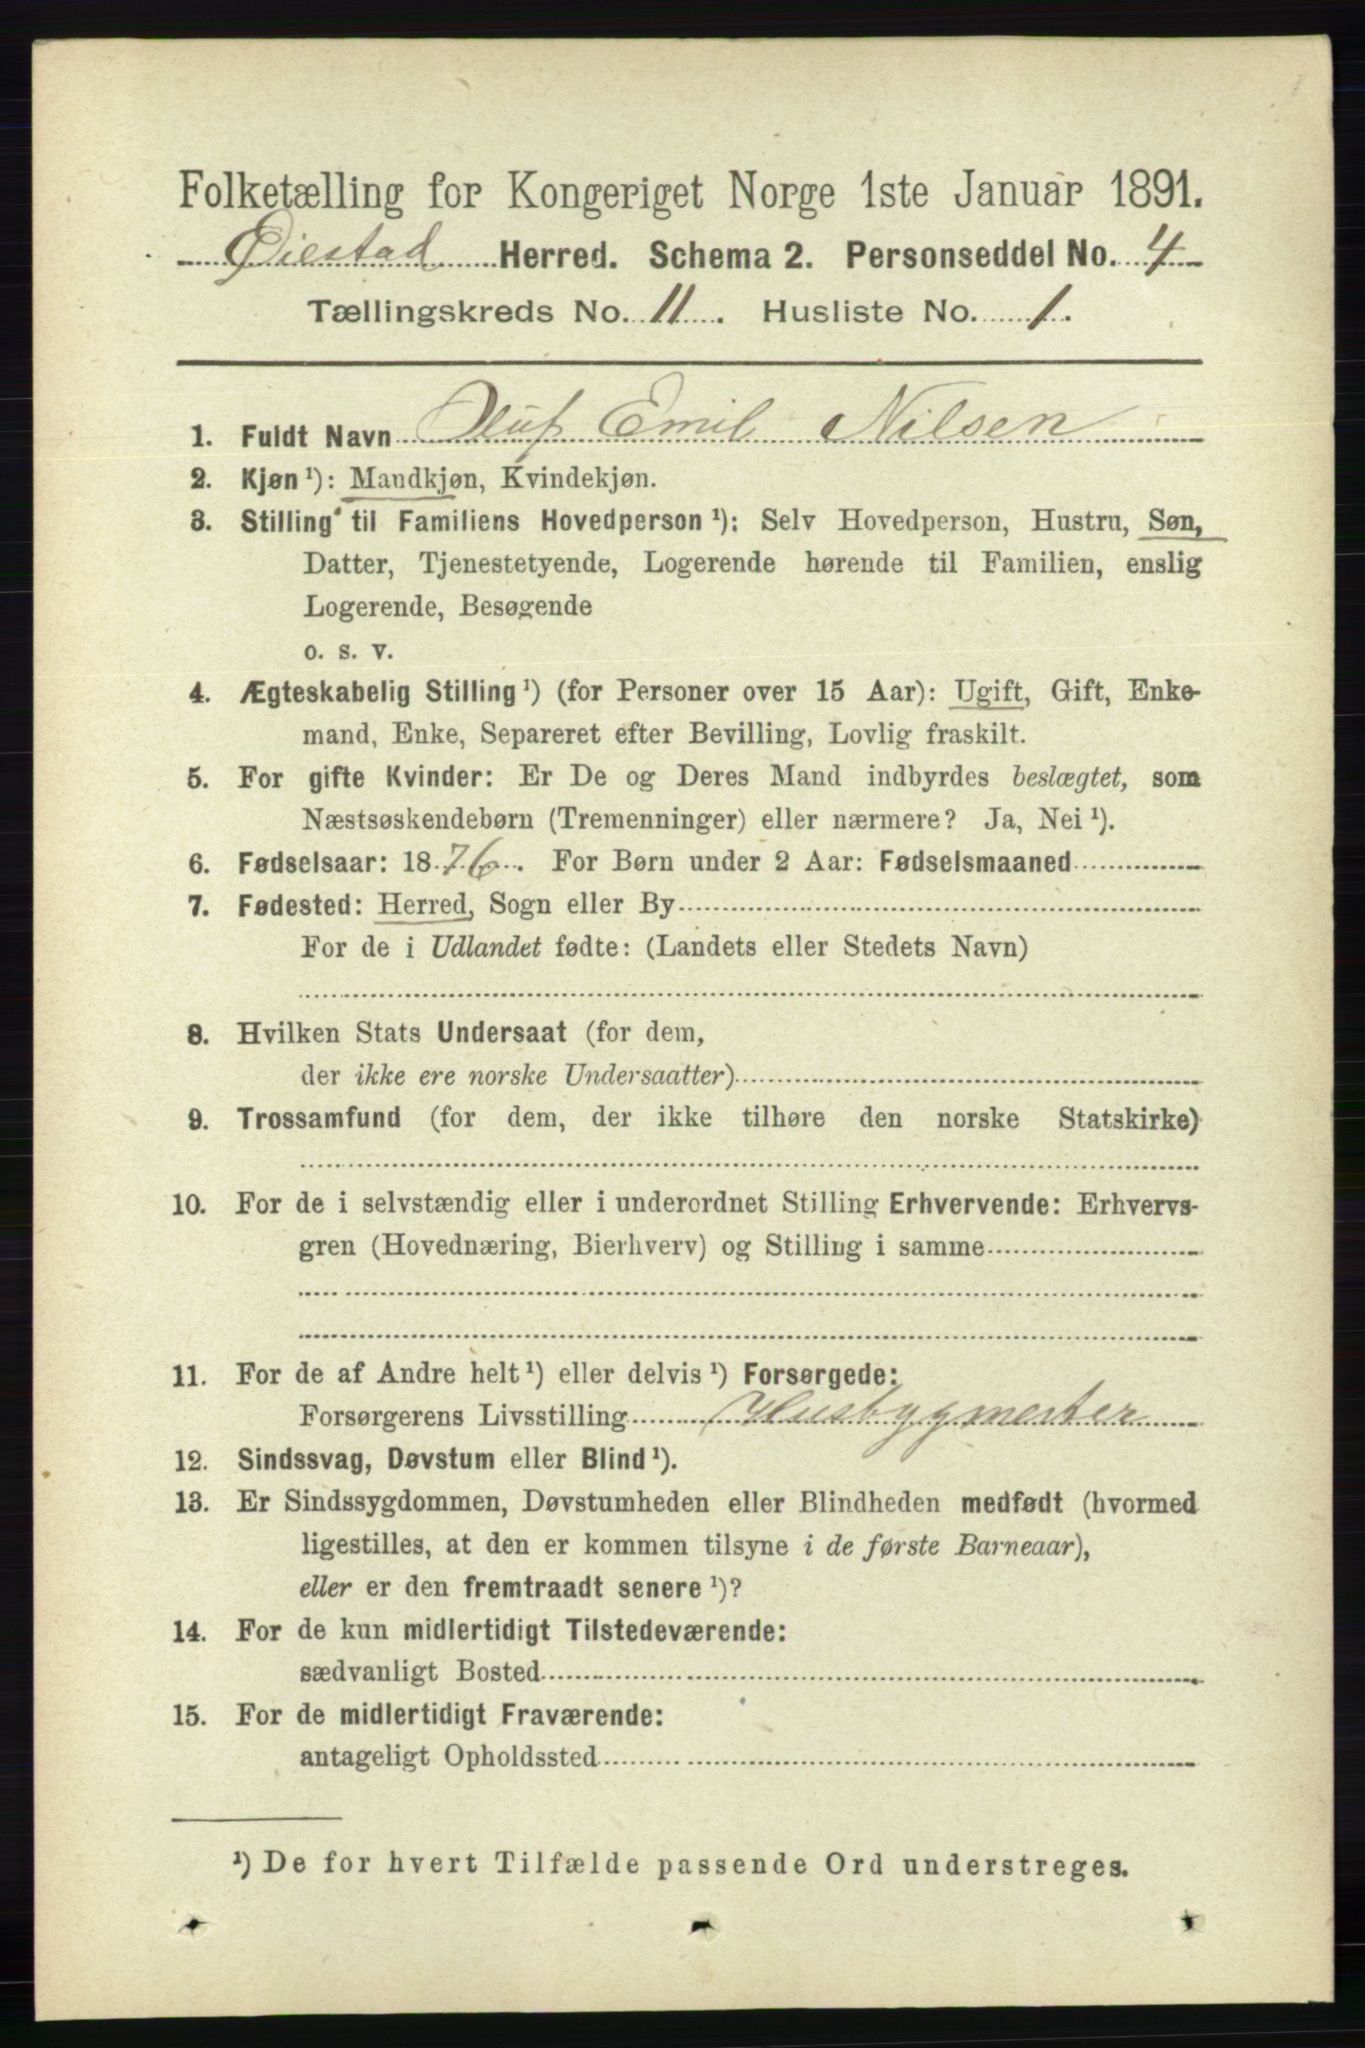 Folketælling for Kongeriget Norge 1ste Januar 1891.
Øiestad Herred. Schema 2. Personseddel No. 4
Tællingskreds No. 11. Husliste No. 1.
1. Fuldt Navn Oluf Emil Nilsen
2. Kjøn ¹): Mandkjøn, Kvindekjøn.
3. Stilling til Familiens Hovedperson ¹): Selv Hovedperson, Hustru, Søn,
Datter, Tjenestetyende, Logerende hørende til Familien, enslig
Logerende, Besøgende
o. s. v.
4. Ægteskabelig Stilling ¹) (for Personer over 15 Aar): Ugift, Gift, Enke-
mand, Enke, Separeret efter Bevilling, Lovlig fraskilt.
5. For gifte Kvinder: Er De og Deres Mand indbyrdes beslægtet, som
Næstsøskendebørn (Tremenninger) eller nærmere? Ja, Nei ¹).
6. Fødselsaar: 1876. For Børn under 2 Aar: Fødselsmaaned
7. Fødested: Herred, Sogn eller By
For de i Udlandet fødte: (Landets eller Stedets Navn)
8. Hvilken Stats Undersaat (for dem,
der ikke ere norske Undersaatter)
9. Trossamfund (for dem, der ikke tilhøre den norske Statskirke)
10. For de i selvstændig eller i underordnet Stilling Erhvervende: Erhvervs-
gren (Hovednæring, Bierhverv) og Stilling i samme
11. For de af Andre helt ¹) eller delvis ¹) Forsørgede:
Forsørgerens Livsstilling Husbygmester
12. Sindssvag, Døvstum eller Blind ¹).
13. Er Sindssygdommen, Døvstumheden eller Blindheden medfødt (hvormed
ligestilles, at den er kommen tilsyne i de første Barneaar),
eller er den fremtraadt senere ¹)?
14. For de kun midlertidigt Tilstedeværende:
sædvanligt Bosted
15. For de midlertidigt Fraværende:
antageligt Opholdssted
¹) De for hvert Tilfælde passende Ord understreges.